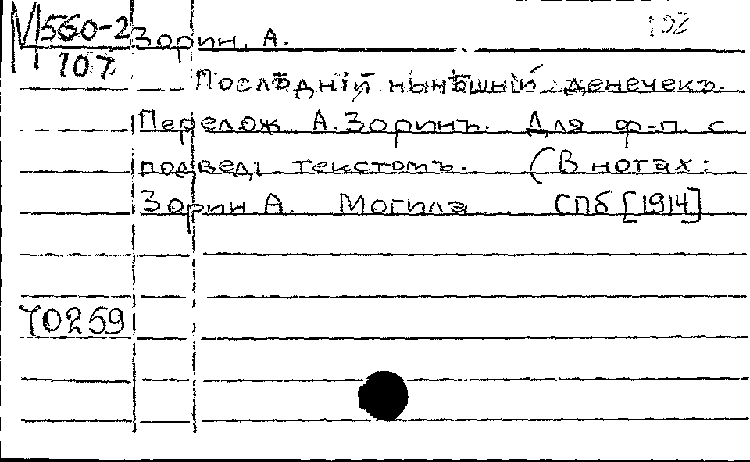 М560-2 Зорин, А.
107
Послѣднiй нынѣшнiй денечекъ.
Перелож А. Зоринъ. Для ф-п. с
подвед. текстомъ. (В нотах:
Зорин А. Могила СПб [1914]
70259